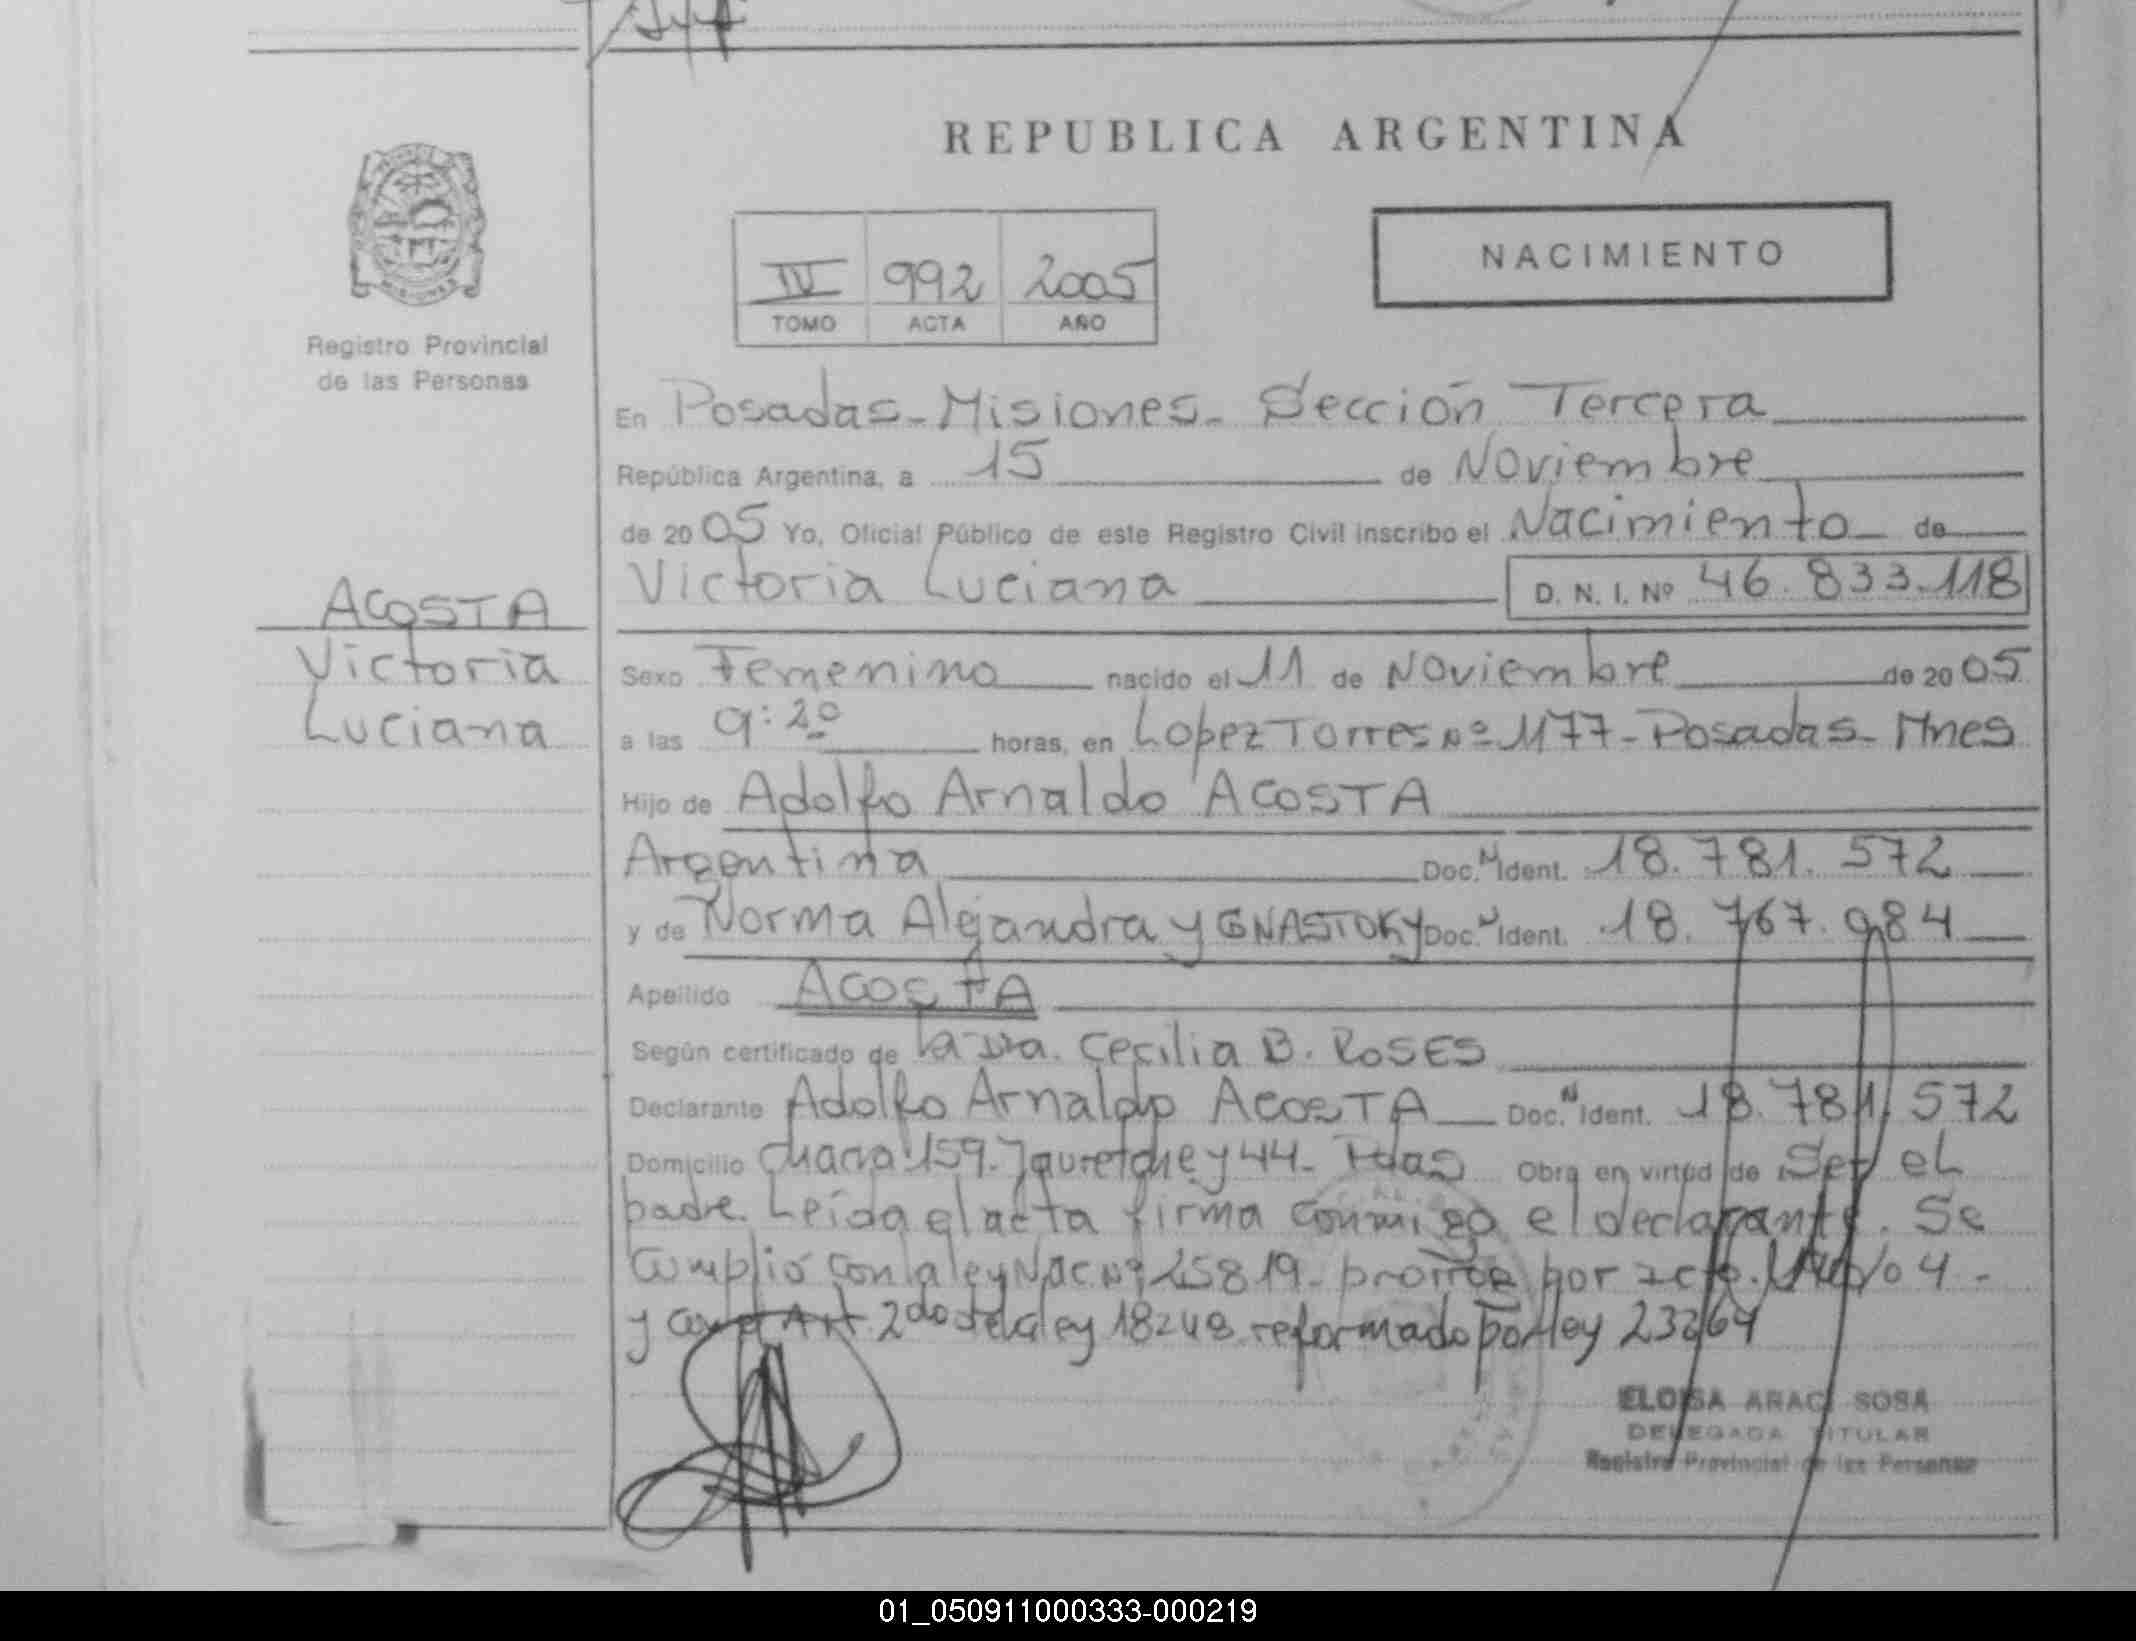 REPUBLICA ARGENTINA
NACIMIENTO
IV 992 2005
TOMO ACTA AÑO
MISIONES
Registro Provincial
de las Personas
ACOSTA
Victoria
Luciana
En Posadas-Misiones- Sección Tercera
República Argentina, a 15 de Noviembre
de 2005 Yo, Oficial Público de este Registro Civil inscribo el Nacimiento de
Victoria Luciana D. N. I. Nº 46.833.118
Sexo Femenino nacido el 11 de Noviembre de 2005
a las 9:20 horas, en Lopez Torres Nº 1177-Posadas-Mnes
Hijo de Adolfo Arnaldo ACOSTA
Argentina Doc. N Ident. 18.781.572
y de Norma Alejandra YGNASTOKY Doc. N Ident. 18.767.984
Apellido ACOSTA
Según certificado de la Dra. Cecilia B. ROSES
Declarante Adolfo Arnaldo ACOSTA Doc. N Ident. 18.781.572
Domicilio chacra 159-Jauretche y 44- Pdas Obra en virtud de Ser el
padre. Leída el acta firma conmigo el declarante. Se
cumplió con la ley Nac Nº 25819- por
y Art 2do de la ley 18248 reformado por ley 23264
ELOISA ARACI SOSA
DELEGADA TITULAR
Registro Provincial de las Personas
01_050911000333-000219